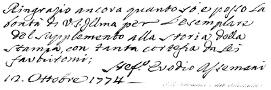 Ringrazio ancora quanto so e posso la
bontà di V.S. Illma per l'esemplare
del Supplemento alla Storia della
Stampa, con tanta cortesia da lei
favoritomi;
Stef.° Evodio Assemani
12. Ottobre 1774